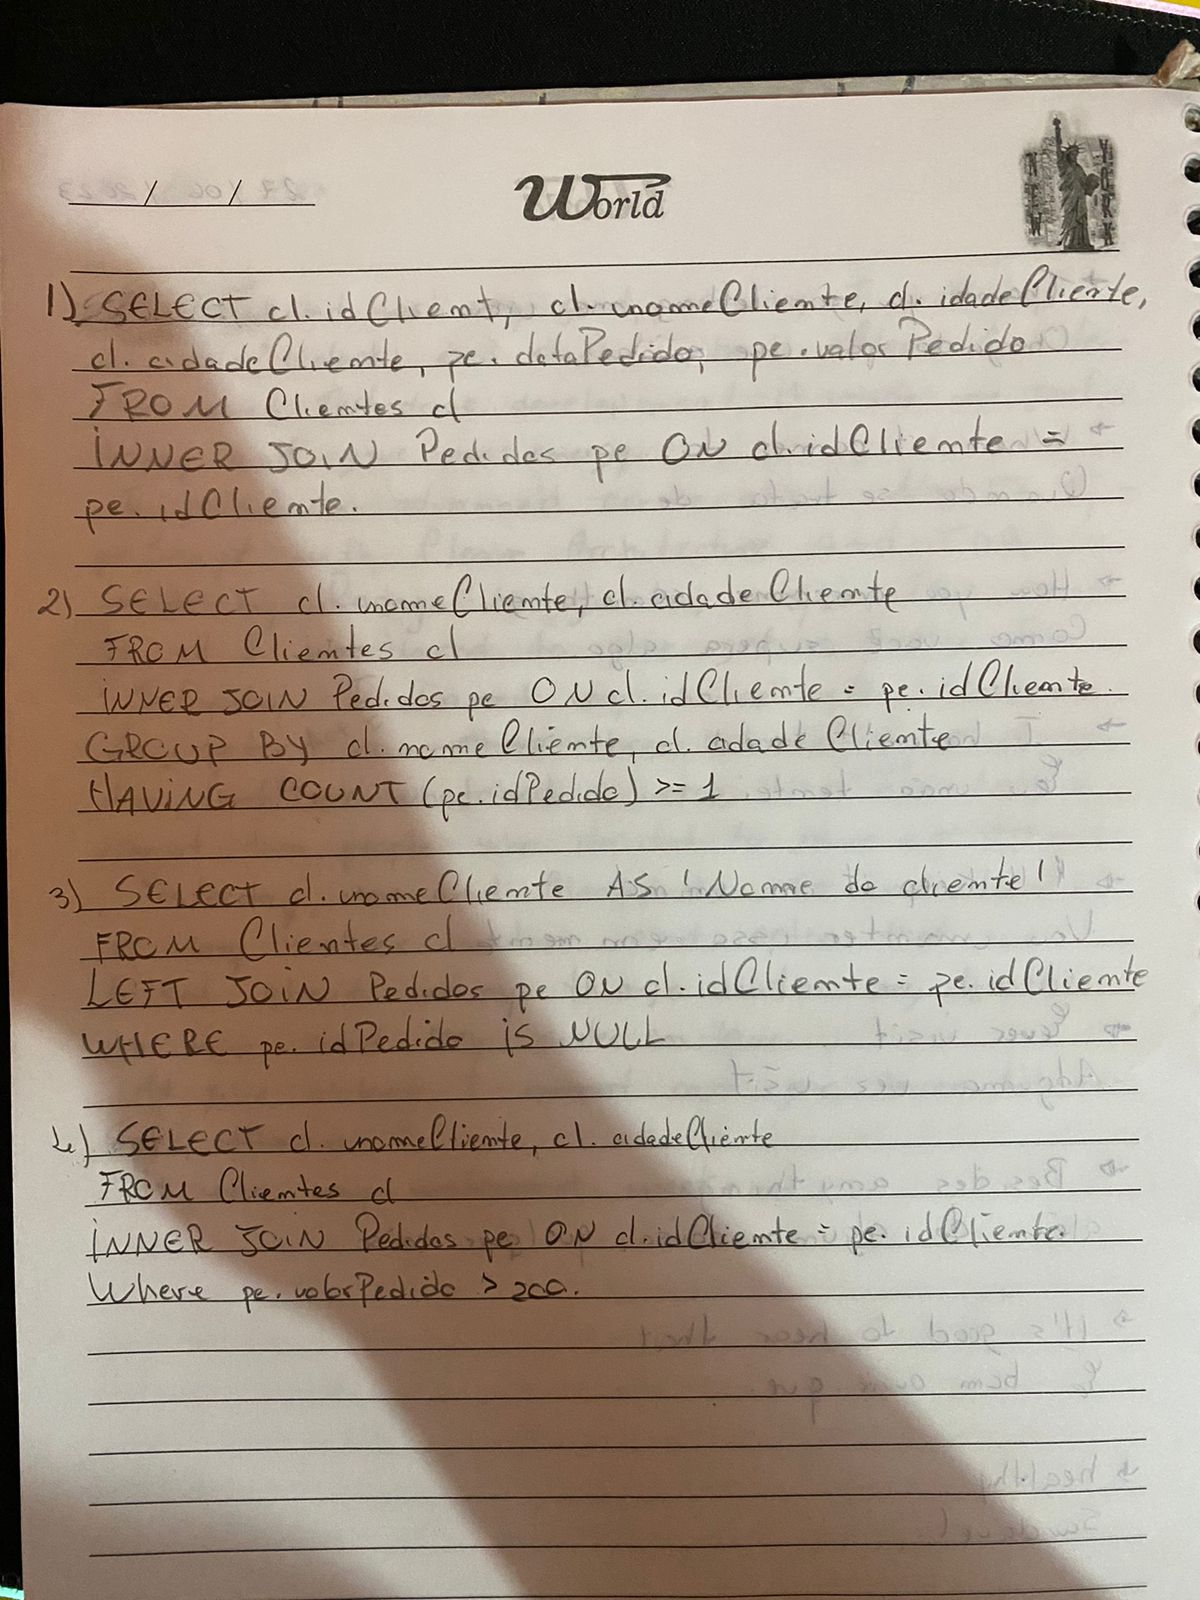 World
NEW YORK
1) SELECT cl.idClient, cl.nomeCliente, cl.idadeCliente,
cl.cidadeCliente, pe.dataPedido, pe.valorPedido
FROM Clientes cl
INNER JOIN Pedidos pe ON cl.idCliente =
pe.idCliente.
2) SELECT cl.nomeCliente, cl.cidadeCliente
FROM Clientes cl
INNER JOIN Pedidos pe ON cl.idCliente = pe.idCliente.
GROUP BY cl.nomeCliente, cl.cidadeCliente
HAVING COUNT (pe.idPedido) >= 1
3) SELECT cl.nomeCliente AS 'Nome do cliente'
FROM Clientes cl
LEFT JOIN Pedidos pe ON cl.idCliente = pe.idCliente
WHERE pe.idPedido is NULL
4) SELECT cl.nomeCliente, cl.cidadeCliente
FROM Clientes cl
INNER JOIN Pedidos pe ON cl.idCliente = pe.idCliente.
Where pe.valorPedido > 200.